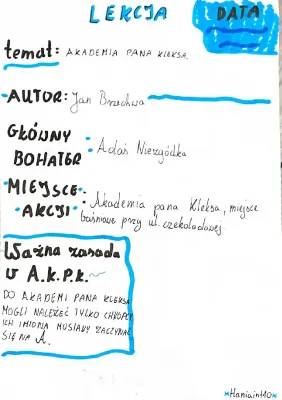 LEKCJA DATA
temat: AKADEMIA PANA KLEKSA.
AUTOR: Jan Brzechwa
GŁÓWNY
BOHATER • Adaś Niezgódka
MIEJSCE
AKCJI • Akademia pana Kleksa, miejsce
baśniowe przy ul. czekoladowej.
Ważna zasada
W A.k.P.k.
DO AKADEMI PANA KLEKSA
MOGLI NALEŻEĆ TYLKO CHŁOPCY
ICH IMIONA MUSIAŁY ZACZYNAĆ
SIĘ NA A.
Haniaint10